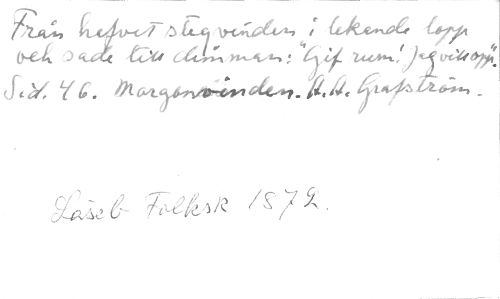 Från hafvet steg vinden i lekande lopp
och sade till dimman: "Gif rum! Jag vill opp".
Sid. 46. Morgonvinden. A.A. Grafström.
Läseb Folksk 1872.